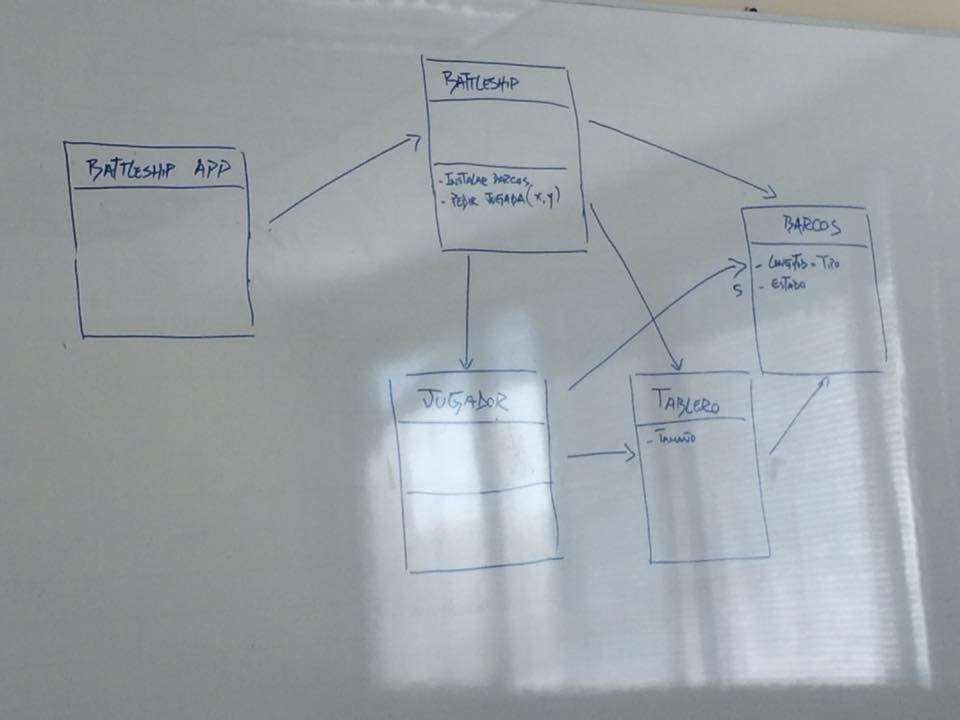 BATTLESHIP
BATTLESHIP APP
- INSTALAR BARCOS
- PEDIR JUGADA (x,y)
BARCOS
- LONGITUD = TIPO
- ESTADO
5
JUGADOR
TABLERO
- TAMAÑO